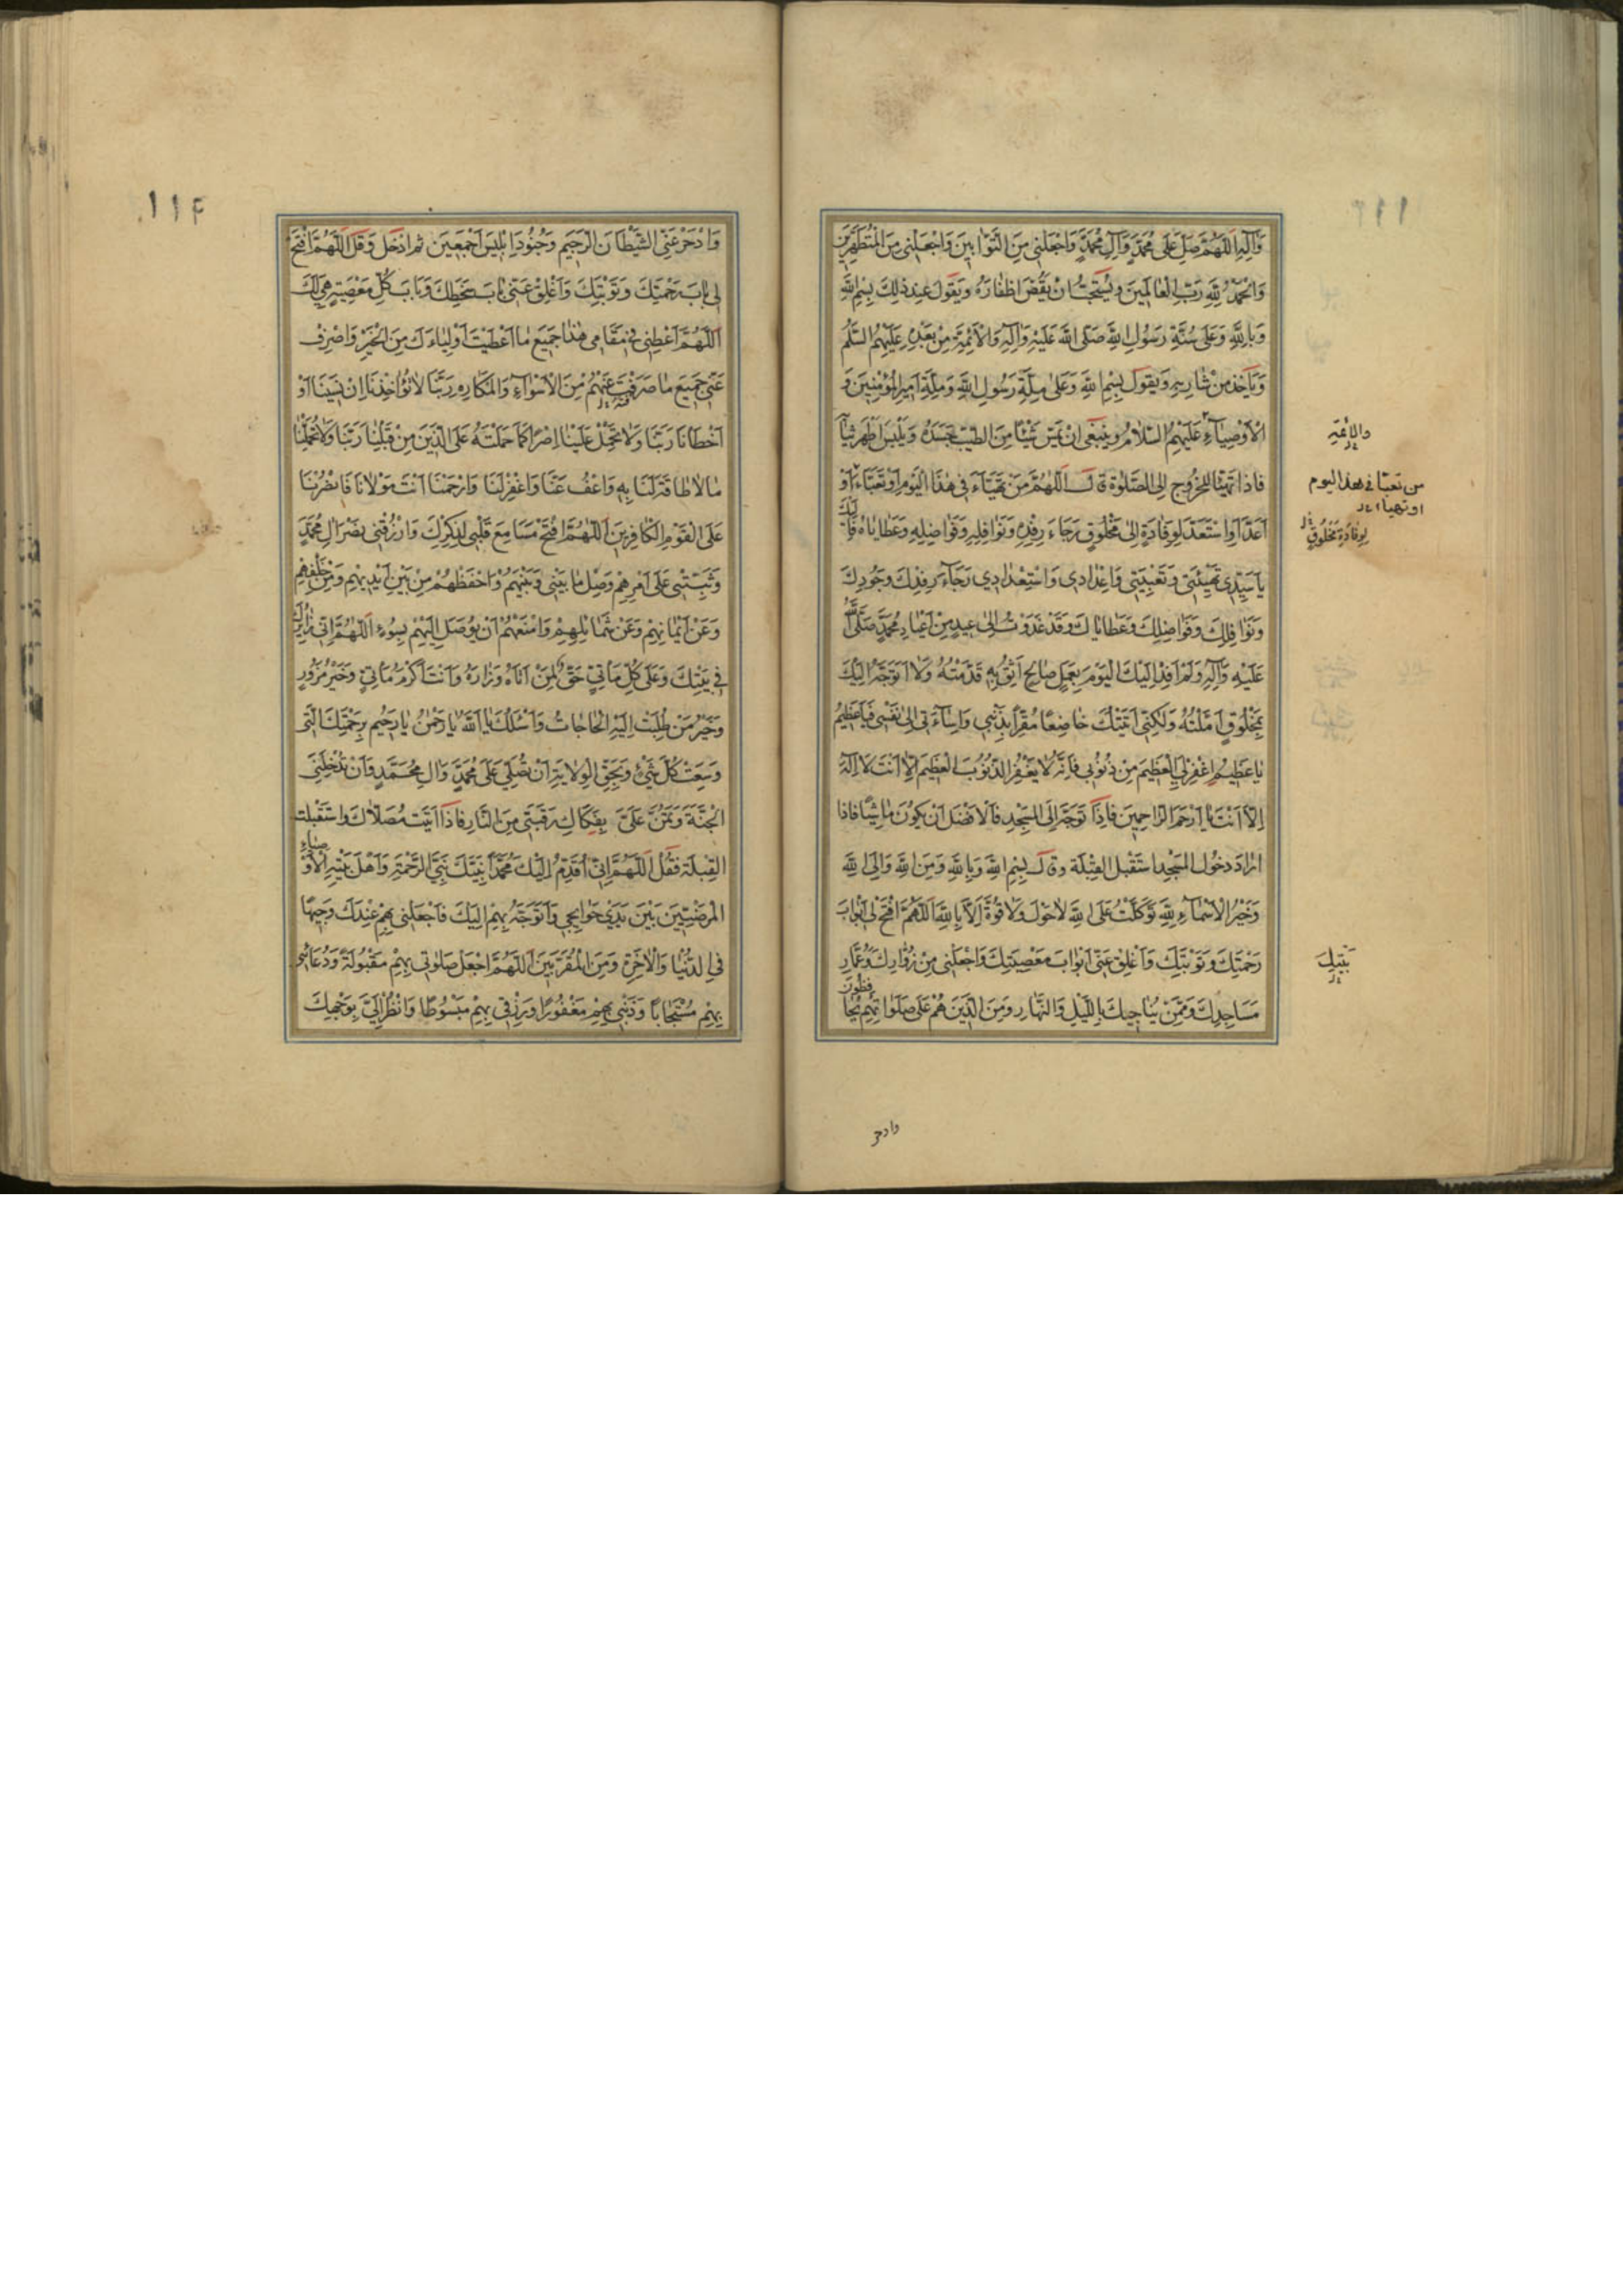 وَآلِهِ اَللّٰهُمَّ صَلِّ عَلٰى مُحَمَّدٍ وَآلِ مُحَمَّدٍ وَاجْعَلْنِي مِنَ التَّوّابِينَ وَاجْعَلْنِي مِنَ الْمُتَطَهِّرِينَ
وَالْحَمْدُ لِلّٰهِ رَبِّ الْعٰالَمِينَ وَيُسْتَحَبُّ اَنْ يَقُصَّ اَظْفٰارَهُ وَيَقُولَ عِنْدَ ذٰلِكَ بِسْمِ اللّٰهِ
وَبِاللّٰهِ وَعَلٰى سُنَّةِ رَسُولِ اللّٰهِ صَلَّى اللّٰهُ عَلَيْهِ وَآلِهِ وَالْاَئِمَّةِ مِنْ بَعْدِهِ عَلَيْهِمُ السَّلٰمُ
وَيَأْخُذَ مِنْ شٰارِبِهِ وَيَقُولَ بِسْمِ اللّٰهِ وَعَلٰى مِلَّةِ رَسُولِ اللّٰهِ وَمِلَّةِ اَمِيرِ الْمُؤْمِنِينَ وَ
الْاَوْصِيٰآءِ عَلَيْهِمُ السَّلٰامُ وَيَنْبَغِي اَنْ يَمَسَّ شَيْئًا مِنَ الطِّيبِ جَسَدَهُ وَيَلْبَسَ اَطْهَرَ ثِيٰابِهِ
فَاِذٰا تَهَيَّأَ لِلْخُرُوجِ اِلَى الصَّلٰوةِ قٰالَ اَللّٰهُمَّ مَنْ تَهَيَّاءَ فِي هٰذَا الْيَوْمِ اَوْ تَعَبَّاءَ اَوْ
اَعَدَّ اَوِ اسْتَعَدَّ لِوِفٰادَةٍ اِلٰى مَخْلُوقٍ رَجٰاءَ رِفْدِهِ وَنَوٰافِلِهِ وَفَوٰاضِلِهِ وَعَطٰايٰاهُ فَاِلَيْكَ
يٰا سَيِّدِي تَهْيِئَتِي وَتَعْبِيَتِي وَاِعْدٰادِي وَاسْتِعْدٰادِي رَجٰآءَ رِفْدِكَ وَجُودِكَ
وَنَوٰافِلِكَ وَفَوٰاضِلِكَ وَعَطٰايٰاكَ وَقَدْ غَدَوْتُ اِلٰى عِيدٍ مِنْ اَعْيٰادِ مُحَمَّدٍ صَلَّى اللّٰهُ
عَلَيْهِ وَآلِهِ وَلَمْ اَفِدْ اِلَيْكَ الْيَوْمَ بِعَمَلٍ صٰالِحٍ اَثِقُ بِهِ قَدَّمْتُهُ وَلٰا اَتَوَجَّهُ اِلَيْكَ
بِمَخْلُوقٍ اَمَّلْتُهُ وَلٰكِنِّي اَتَيْتُكَ خٰاضِعًا مُقِرًّا بِذَنْبِي وَاِسٰآءَتِي اِلٰى نَفْسِي فَيٰا عَظِيمُ
يٰا عَظِيمُ اِغْفِرْ لِيَ الْعَظِيمَ مِنْ ذُنُوبِي فَاِنَّهُ لٰا يَغْفِرُ الذُّنُوبَ الْعَظِيمَ اِلّٰا اَنْتَ لٰا اِلٰهَ
اِلّٰا اَنْتَ يٰا اَرْحَمَ الرّٰاحِمِينَ فَاِذٰا تَوَجَّهَ اِلَى الْمَسْجِدِ فَالْاَفْضَلُ اَنْ يَكُونَ مٰاشِيًا فَاِذٰا
اَرٰادَ دُخُولَ الْمَسْجِدِ اسْتَقْبَلَ الْقِبْلَةَ وَقٰالَ بِسْمِ اللّٰهِ وَبِاللّٰهِ وَمِنَ اللّٰهِ وَاِلَى اللّٰهِ
وَخَيْرُ الْاَسْمٰآءِ لِلّٰهِ تَوَكَّلْتُ عَلَى اللّٰهِ لٰا حَوْلَ وَلٰا قُوَّةَ اِلّٰا بِاللّٰهِ اَللّٰهُمَّ افْتَحْ لِي اَبْوٰابَ
رَحْمَتِكَ وَتَوْبَتِكَ وَاَغْلِقْ عَنِّي اَبْوٰابَ مَعْصِيَتِكَ وَاجْعَلْنِي مِنْ زُوّٰارِكَ وَعُمّٰارِ
مَسٰاجِدِكَ وَمِمَّنْ يُنٰاجِيكَ بِاللَّيْلِ وَالنَّهٰارِ وَمِنَ الَّذِينَ هُمْ عَلٰى صَلَوٰاتِهِمْ يُحٰافِظُونَ
والائمة
من تعبّأ في هذا اليوم
او تهيأ
لِوِفٰادَةِ مَخْلُوقٍ
بَيْتِكَ
وادحر
١١٤
وَادْحَرْ عَنِّي الشَّيْطٰانَ الرَّجِيمَ وَجُنُودَ اِبْلِيسَ اَجْمَعِينَ ثُمَّ ادْخُلْ وَقُلْ اَللّٰهُمَّ افْتَحْ
لِي بٰابَ رَحْمَتِكَ وَتَوْبَتِكَ وَاَغْلِقْ عَنِّي بٰابَ سَخَطِكَ وَبٰابَ كُلِّ مَعْصِيَةٍ هِيَ لَكَ
اَللّٰهُمَّ اَعْطِنِي فِي مَقٰامِي هٰذٰا جَمِيعَ مٰا اَعْطَيْتَ اَوْلِيٰاءَكَ مِنَ الْخَيْرِ وَاصْرِفْ
عَنِّي جَمِيعَ مٰا صَرَفْتَ عَنْهُمْ مِنَ الْاَسْوٰآءِ وَالْمَكٰارِهِ رَبَّنٰا لٰا تُؤٰاخِذْنٰا اِنْ نَسِينٰا اَوْ
اَخْطَأْنٰا رَبَّنٰا وَلٰا تَحْمِلْ عَلَيْنٰا اِصْرًا كَمٰا حَمَلْتَهُ عَلَى الَّذِينَ مِنْ قَبْلِنٰا رَبَّنٰا وَلٰا تُحَمِّلْنٰا
مٰا لٰا طٰاقَةَ لَنٰا بِهِ وَاعْفُ عَنّٰا وَاغْفِرْ لَنٰا وَارْحَمْنٰا اَنْتَ مَوْلٰانٰا فَانْصُرْنٰا
عَلَى الْقَوْمِ الْكٰافِرِينَ اَللّٰهُمَّ افْتَحْ مَسٰامِعَ قَلْبِي لِذِكْرِكَ وَارْزُقْنِي نَصْرَ آلِ مُحَمَّدٍ
وَثَبِّتْنِي عَلٰى اَمْرِهِمْ وَصِلْ مٰا بَيْنِي وَبَيْنَهُمْ وَاحْفَظْهُمْ مِنْ بَيْنِ اَيْدِيهِمْ وَمِنْ خَلْفِهِمْ
وَعَنْ اَيْمٰانِهِمْ وَعَنْ شَمٰائِلِهِمْ وَامْنَعْهُمْ اَنْ يُوصَلَ اِلَيْهِمْ بِسُوءٍ اَللّٰهُمَّ اِنِّي زٰائِرُكَ
فِي بَيْتِكَ وَعَلٰى كُلِّ مَأْتِيٍّ حَقٌّ لِمَنْ اَتٰاهُ وَزٰارَهُ وَاَنْتَ اَكْرَمُ مَأْتِيٍّ وَخَيْرُ مَزُورٍ
وَخَيْرُ مَنْ طُلِبَتْ اِلَيْهِ الْحٰاجٰاتُ وَاَسْئَلُكَ يٰا اَللّٰهُ يٰا رَحْمٰنُ يٰا رَحِيمُ بِرَحْمَتِكَ الَّتِي
وَسِعَتْ كُلَّ شَيْءٍ وَبِحَقِّ الْوِلٰايَةِ اَنْ تُصَلِّيَ عَلٰى مُحَمَّدٍ وَآلِ مُحَمَّدٍ وَاَنْ تُدْخِلَنِيَ
الْجَنَّةَ وَتَمُنَّ عَلَيَّ بِفَكٰاكِ رَقَبَتِي مِنَ النّٰارِ فَاِذٰا اَتَيْتَ مُصَلّٰاكَ وَاسْتَقْبَلْتَ
الْقِبْلَةَ فَقُلْ اَللّٰهُمَّ اِنِّي اُقَدِّمُ اِلَيْكَ مُحَمَّدًا نَبِيَّكَ نَبِيَّ الرَّحْمَةِ وَاَهْلَ بَيْتِهِ الْاَوْصِيٰاءَ
الْمَرْضِيِّينَ بَيْنَ يَدَيْ حَوٰائِجِي وَاَتَوَجَّهُ بِهِمْ اِلَيْكَ فَاجْعَلْنِي بِهِمْ عِنْدَكَ وَجِيهًا
فِي الدُّنْيٰا وَالْاٰخِرَةِ وَمِنَ الْمُقَرَّبِينَ اَللّٰهُمَّ اجْعَلْ صَلٰوتِي بِهِمْ مَقْبُولَةً وَدُعٰائِي
بِهِمْ مُسْتَجٰابًا وَذَنْبِي بِهِمْ مَغْفُورًا وَرِزْقِي بِهِمْ مَبْسُوطًا وَانْظُرْ اِلَيَّ بِوَجْهِكَ